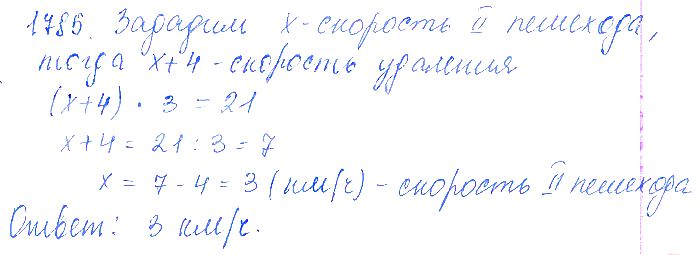 1785. Зададим x - скорость II пешехода,
тогда x+4 - скорость удаления
(x+4) · 3 = 21
x+4 = 21 : 3 = 7
x = 7 - 4 = 3 (км/ч) - скорость II пешехода
Ответ: 3 км/ч.